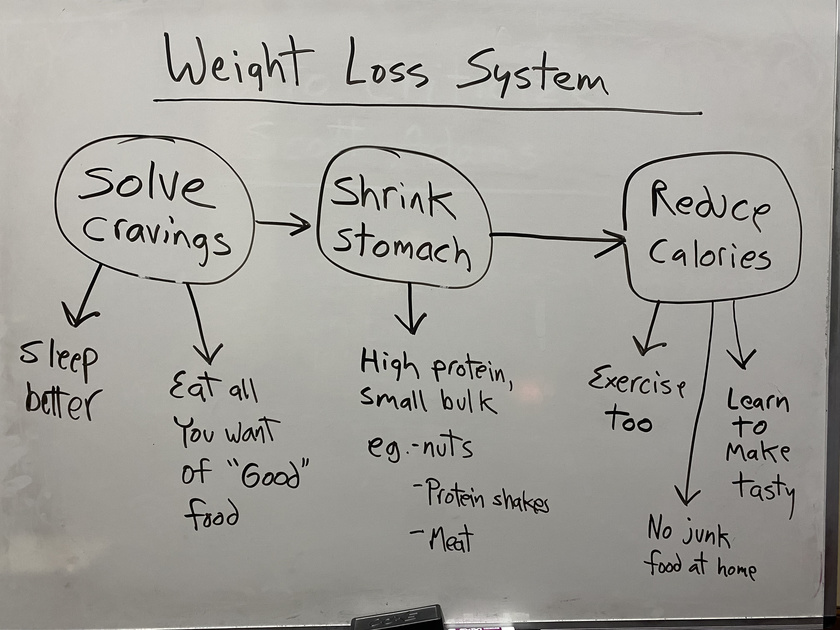 Weight Loss System
Solve
cravings
Shrink
stomach
Reduce
Calories
Sleep
better
Eat all
You want
of "Good"
food
High protein,
small bulk
eg.-nuts
-Protein shakes
-Meat
Exercise
too
No junk
food at home
Learn
to
Make
tasty